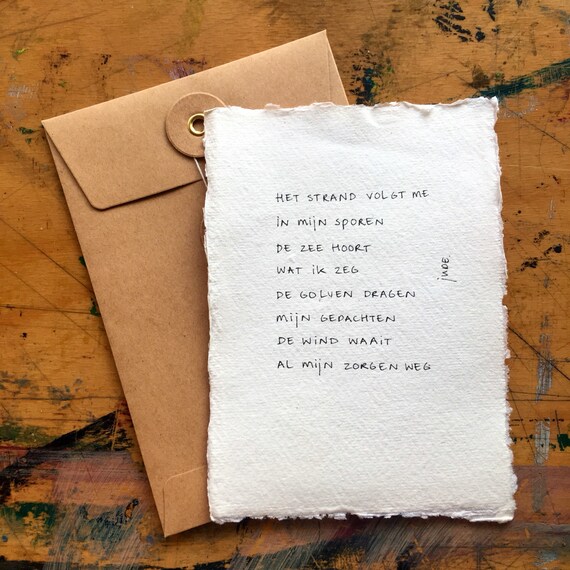 HET STRAND VOLGT ME
IN mijn SPOREN
DE ZEE HOORT
WAT ik ZEG
DE GOLVEN DRAGEN
mijn GEDACHTEN
DE WIND WAAIT
AL mijn ZORGEN WEG
juDE.